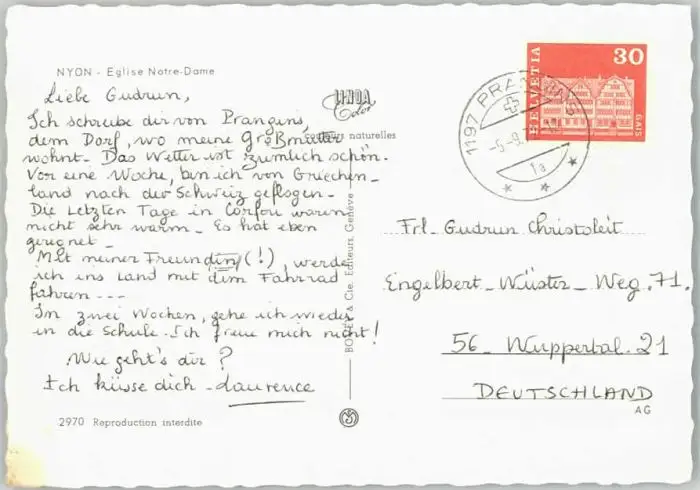 NYON - Eglise Notre-Dame
Liebe Gudrun,
Ich schreibe dir von Prangins,
dem Dorf, wo meine Großmutter
wohnt. Das Wetter ist zumlich schön.
Vor eine Woche, bin ich von Griechen-
land nach der Schweiz geflogen.
Die letzten Tage in Corfou waren
nicht sehr warm. Es hat eben
geregnet.
Mit meiner Freundin (!), werde
ich ins Land mit dem Fahrrad
fahren ---
In zwei Wochen, gehe ich wieder
in die Schule. Ich freue mich nicht!
Wie geht's dir?
Ich küsse dich - Laurence
2970 Reproduction interdite
Color
couleurs naturelles
& Cie. Editeurs. Genève
HELVETIA
30
GAIS
1197 PRANGINS
-5.-9.
1a
Frl. Gudrun Christoleit
Engelbert-Wüster-Weg.71.
56-Wuppertal.21
DEUTSCHLAND
AG